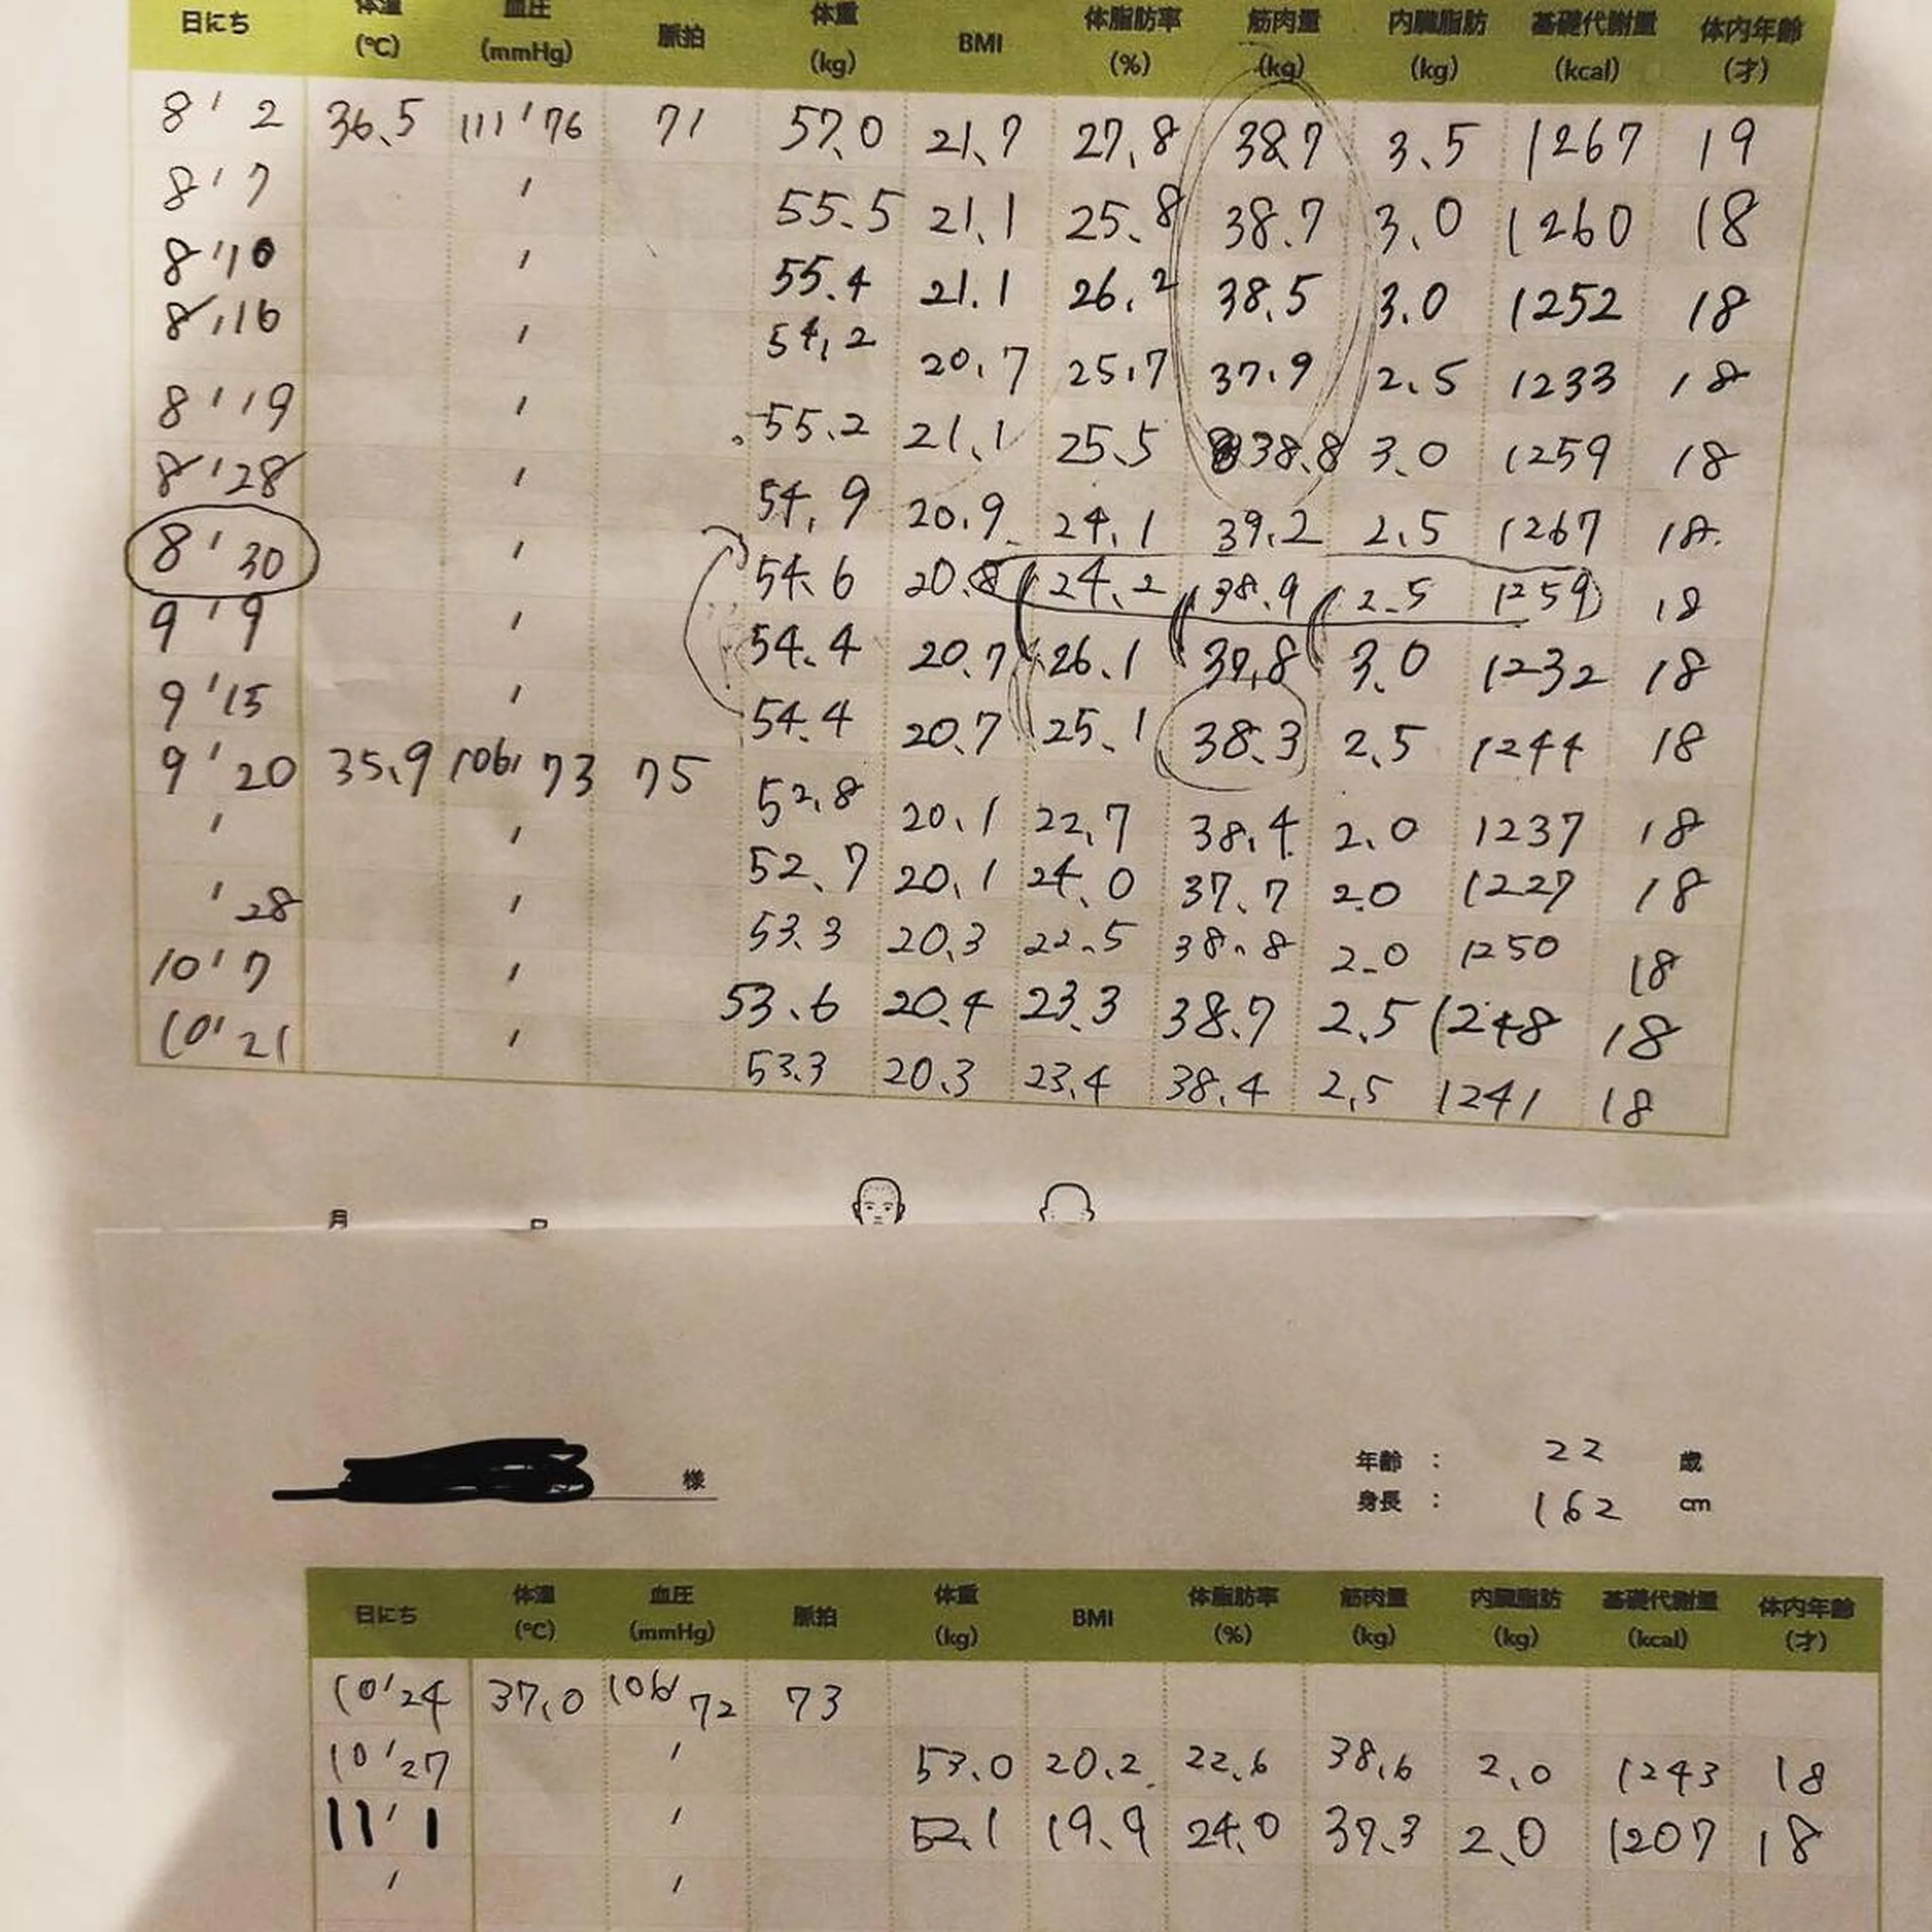 日にち 体温 血圧 脈拍 体重 BMI 体脂肪率 筋肉量 内臓脂肪 基礎代謝量 体内年齢
(℃) (mmHg) (kg) (%) (kg) (kg) (kcal) (才)
8 ' 2 36.5 111 ' 76 71 57.0 21.7 27.8 38.7 3.5 1267 19
8 ' 7 ' 55.5 21.1 25.8 38.7 3.0 1260 18
8 ' 10 ' 55.4 21.1 26.2 38.5 3.0 1252 18
8 ' 16 ' 54.2 20.7 25.7 37.9 2.5 1233 18
8 ' 19 ' 55.2 21.1 25.5 38.8 3.0 1259 18
8 ' 28 ' 54.9 20.9 24.1 39.2 2.5 1267 18
8 ' 30 ' 54.6 20.8 24.2 38.9 2.5 1259 18
9 ' 9 ' 54.4 20.7 26.1 37.8 3.0 1232 18
9 ' 15 ' 54.4 20.7 25.1 38.3 2.5 1244 18
9 ' 20 35.9 106 ' 73 75 52.8 20.1 22.7 38.4 2.0 1237 18
' ' 52.7 20.1 24.0 37.7 2.0 1227 18
' 28 ' 53.3 20.3 22.5 38.8 2.0 1250 18
10 ' 7 ' 53.6 20.4 23.3 38.7 2.5 1248 18
10 ' 21 ' 53.3 20.3 23.4 38.4 2.5 1241 18
月
様 年齢 : 22 歳
身長 : 162 cm
日にち 体温 血圧 脈拍 体重 BMI 体脂肪率 筋肉量 内臓脂肪 基礎代謝量 体内年齢
(℃) (mmHg) (kg) (%) (kg) (kg) (kcal) (才)
10 ' 24 37.0 106 ' 72 73
10 ' 27 ' 53.0 20.2 22.6 38.6 2.0 1243 18
11 ' 1 ' 52.1 19.9 24.0 37.3 2.0 1207 18
' '